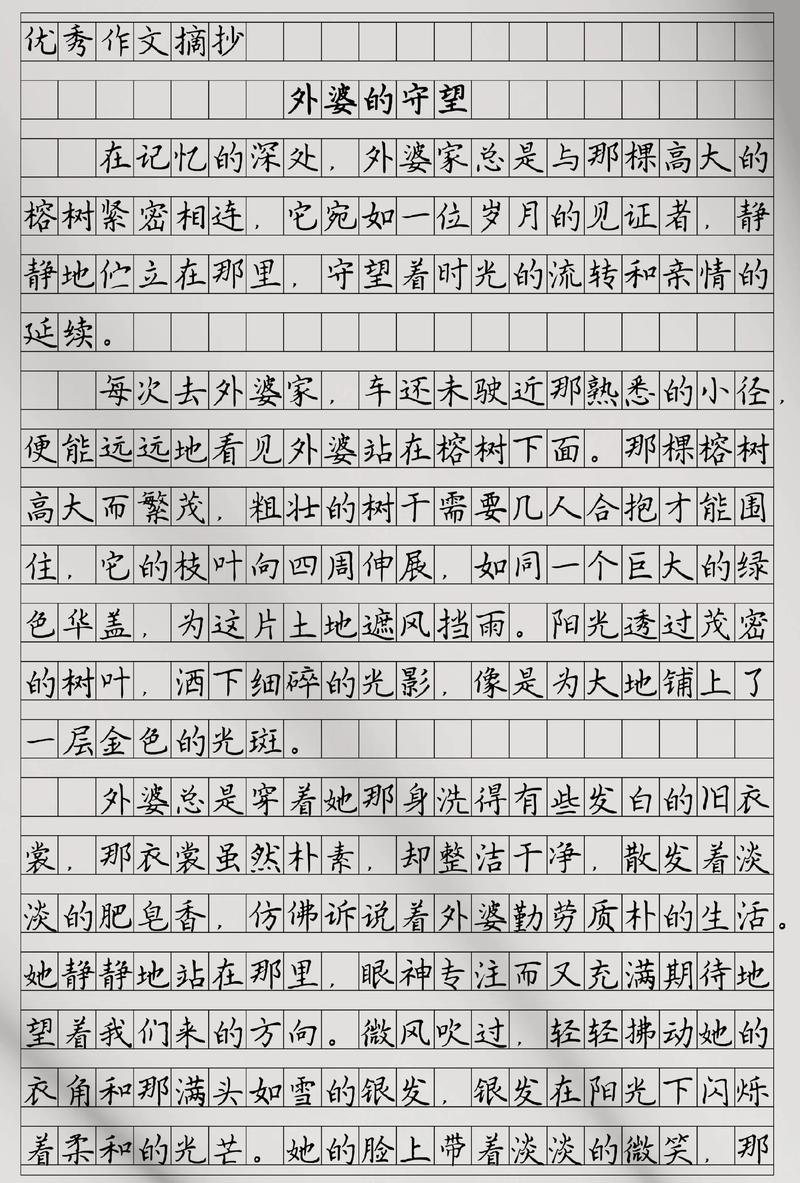 优秀作文摘抄
外婆的守望
在记忆的深处，外婆家总是与那棵高大的
榕树紧密相连，它宛如一位岁月的见证者，静
静地伫立在那里，守望着时光的流转和亲情的
延续。
每次去外婆家，车还未驶近那熟悉的小径，
便能远远地看见外婆站在榕树下面。那棵榕树
高大而繁茂，粗壮的树干需要几人合抱才能围
住，它的枝叶向四周伸展，如同一个巨大的绿
色华盖，为这片土地遮风挡雨。阳光透过茂密
的树叶，洒下细碎的光影，像是为大地铺上了
一层金色的光斑。
外婆总是穿着她那身洗得有些发白的旧衣
裳，那衣裳虽然朴素，却整洁干净，散发着淡
淡的肥皂香，仿佛诉说着外婆勤劳质朴的生活。
她静静地站在那里，眼神专注而又充满期待地
望着我们来的方向。微风吹过，轻轻拂动她的
衣角和那满头如雪的银发，银发在阳光下闪烁
着柔和的光芒。她的脸上带着淡淡的微笑，那